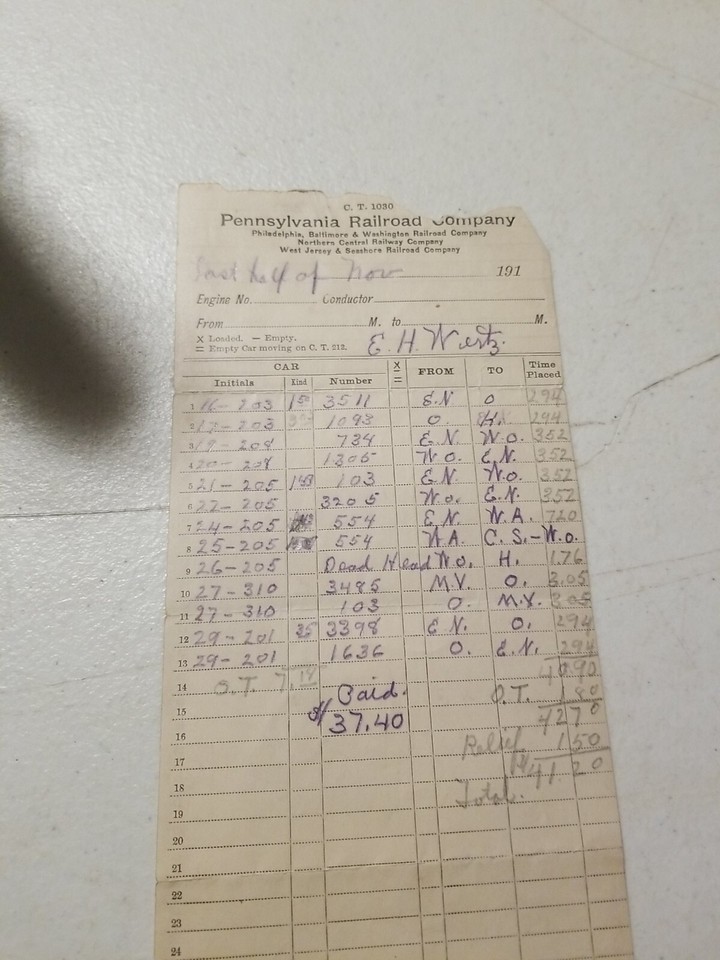 C. T. 1030
Pennsylvania Railroad Company
Philadelphia, Baltimore & Washington Railroad Company
Northern Central Railway Company
West Jersey & Seashore Railroad Company
half of Nov 191
Engine No. Conductor
From M. to M.
X Loaded. — Empty.
= Empty Car moving on C. T. 212. E. H. Wertz.
CAR X — = FROM TO Time Placed
Initials Kind Number
1 16-203 3511 E.N O 294
2 17-203 1093 O. H. 294
3 19-204 734 E.N. W.O. 352
4 20-204 1305 W.O. E.N. 352
5 21-205 103 E.N. W.O. 352
6 22-205 3205 W.O. E.N. 352
7 24-205 554 E.N. W.A. 720
8 25-205 554 W.A. C.S.-W.O.
9 26-205 Dead Head W.O. H. 1.76
10 27-310 3485 M.V. O. 3.05
11 27-310 103 O. M.V. 3.05
12 29-201 35 3398 E.N. O. 294
13 29-201 1636 O. E.N. 294
14 O.T. 40.90
15 Paid. O.T. 180
16 37.40 4270
17 Relief 150
18 41.20
19 Total.
20
21
22
23
24